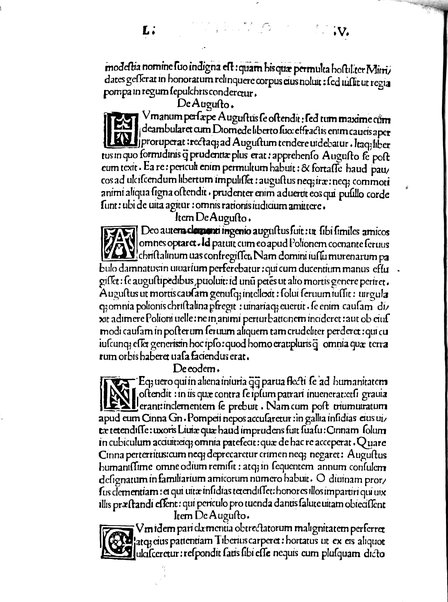 L. V.
modestia nomine suo indigna est: quam his quæ permulta hostiliter Mitri/
dates gesserat in honoratum relinquere corpus eius noluit: sed iussit ut regia
pompa in regum sepulchris conderetur.
De Augusto.
HVmanum persæpe Augustus se ostendit: sed tum maxime cum
deambularet cum Diomede liberto suo: effractis enim caueis aper
proruperat: rectaq; ad Augustum tendere uidebatur. Itaq; liber
tus in quo formidinis q̃ prudentiæ plus erat: apprehenso Augusto se post
eum texit. Ea re: periculi enim permultum habuit: & fortasse haud pau/
cos ad ulciscendum libertum impulisset: augustus neq; iræ: neq; commoti
animi aliqua signa ostendit. prudenter enim aduerit eos qui pusillo corde
sunt: ubi de uita agitur: omnis rationis iudicium amittere.
Item De Augusto.
ADeo autem clementi ingenio augustus fuit: ut sibi similes amicos
omnes optaret. Id patuit cum eo apud Polionem cœnante seruus
christalinum uas confregisset. Nam domini iussu murenarum pa
bulo damnatus in uiuarium perferebatur: qui cum ducentium manus effu/
gisset: se augusti pedibus puoluit: id unũ petẽs ut alio mortis genere periret.
Augustus ut mortis causam genusq; intellexit: solui seruum iussit: uirgula
q; omnia polionis christalina pfregit: uinariaq; euerit: se enim causam di/
xit adimere Polioni telle: ne in animi perturbationem incideret: aut ob eius
modi causam in posterum seruum aliquem tam crudeliter perderet: qui cu
iuscunq; esset generis in hoc ipso: quod homo erat pluris q̃ omnia quæ terra
rum orbis haberet uasa faciendus erat.
De eodem.
NEq; uero qui in aliena iniuria q̃q̃ parua flecti se ad humanitatem
ostendit: in iis quæ contra se ipsum patrari inuenerat: esti grauia
erant: inclementem se prebuit. Nam cum post triumuratum
apud eum Cinna Gn. Pompei nepos accusaretur: in gallia insidias eius ui/
tæ tetendisse: uxoris Liuiæ quæ haud imprudens fuit suasu: Cinnam solum
in cubiculum acciuit: eiq; omnia patefecit: quæ de hac re acceperat. Quare
Cinna perterritus: cum neq; deprecaretur crimen neq; negaret: Augustus
humanissime omne odium remisit: atq; in sequentem annum consulem
designatum in familiarium amicorum numero habuit. O diuinam pror/
sus clementiam: et qui uitæ insidias tetendisset: honores illos impartiri qui uix
illis præstandi essent: qui periculo pro tuenda dantis salute uitam obiecissent
Item De Augusto.
CVm idem pari clæmentia obtrectatorum malignitatem perferret
atq; eius patientiam Tiberius carperet: hortatus ut ex eis aliquot
ulcisceretur: respondit satis sibi esse nequis cum plusquam dicto